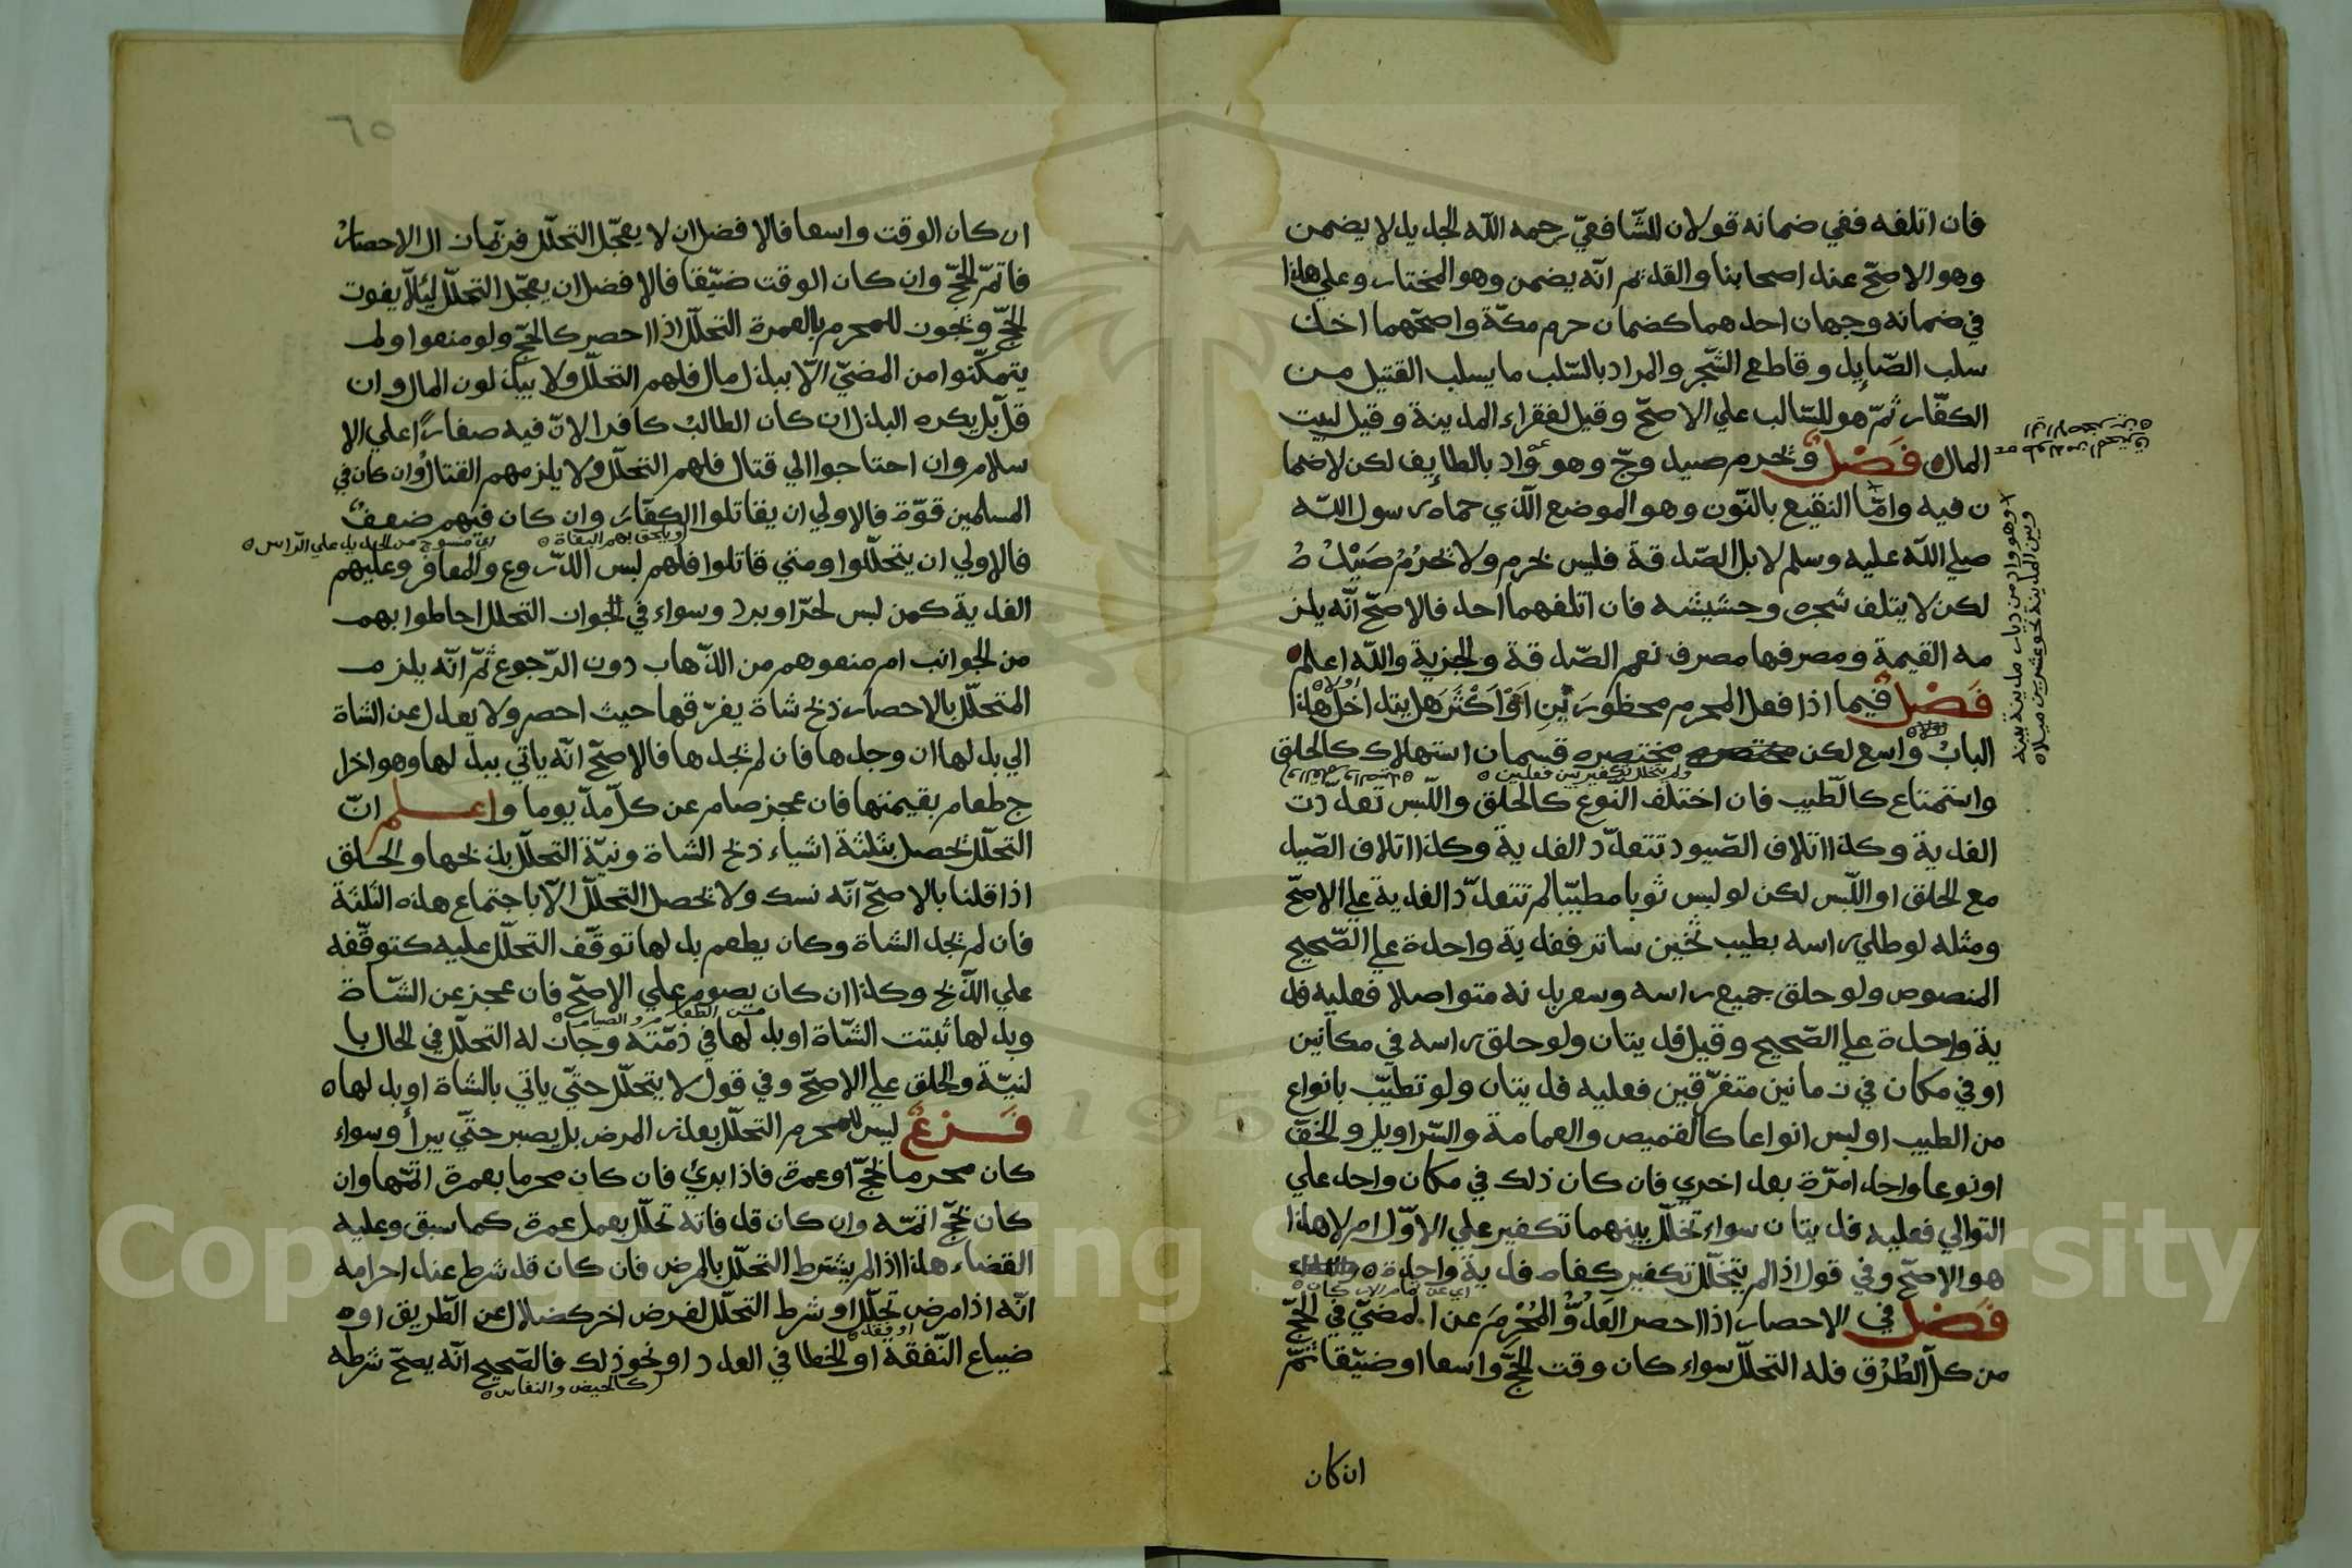 فان اتلفه ففي ضمانه قولان للشّافعيّ رحمه اللّه الجديد لا يضمن
وهو الاصحّ عند اصحابنا والقديم انّه يضمن وهو المختار وعلي هاذا
في ضمانه وجهان احدهما كضمان حرم مكّة واصحّهما اخذ
سلب الصّايد وقاطع الشّجر والمراد بالسّلب ما يسلب القتيل من
الكفّار ثمّ هو للسّالب علي الاصحّ وقيل لفقراء المدينة وقيل لبيت
المال فَصْلٌ وتحرم صيد وجّ وهو واد بالطايف لكن لاضما
ن فيه وامّا النقيع بالنّون وهو الموضع الّذي حماه رسول اللّه
صلي اللّه عليه وسلم لابل الصّدقة فليس بحرم ولا تحرُمُ صَيْدُهُ
لكن لا يتلف شجره وحشيشه فان اتلفهما احد فالاصحّ انّه يلز
مه القيمة ومصرفها مصرف نعم الصّدقة والجزية واللّه اعلم
فَصْلٌ فيما اذا فعل المحرم محظورَينِ اَوْ اَكْثَرَ هَل يتداخل هاذا
البابُ واسع لكن مختصره قسمان استهلاك كالحلق
ولم يتخلل تكفير بين فعلين
واستمتاع كالطّيب فان اختلف النّوع كالحلق واللّبس تعدّدت
الفدية وكذا اتلاف الصّيود تتعدّد الفدية وكذا اتلاف الصّيد
مع الحلق او اللّبس لكن لو لبس ثوبا مطيّبا لم تتعدّد الفدية علي الاصحّ
ومثله لو طلي راسه بطيب ثخين ساتر ففدية واحدة علي الصّحيح
المنصوص ولو حلق جميع راسه وسعر بدنه متواصلا فعليه فد
ية واحدة علي الصّحيح وقيل فديتان ولو حلق راسه في مكانين
او في مكان في زمانين متفرّقين فعليه فديتان ولو تطيّب بانواع
من الطيب او لبس انواعا كالقميص والعمامة والسّراويل والخفّ
او نوعا واحدا مرّة بعد اخري فان كان ذلك في مكان واحد علي
التوالي فعليه فديتان سواء تخلّل بينهما تكفير علي الاوّل ام لا هاذا
هو الاصحّ وفي قول اذا لم يتخلّل تكفير كفاه فدية واحدة
اي عن تمام الاركان
فَصْلٌ في الاحصار اذا احصر العَدُوُّ المُحْرِمَ عن المضيّ في الحجّ
من كلّ الطُرُق فله التحلّل سواء كان وقت الحجّ واسعا او ضيّقا ثمّ
ان كان
وهو واد من ديار مدينة بينه
وبين المدينة نحو عشرين ميلا
٦٥
ان كان الوقت واسعا فالافضل ان لا يعجّل التحلّل فربّما زال الاحصارُ
فاتمّ الحجّ وان كان الوقت ضيّقا فالافضل ان يعجّل التحلّل ليئلّا يفوت
الحجّ وتجوز للمحرم بالعمرة التحلّل اذا احصر كالحجّ ولو منعوا ولم
يتمكّنوا من المضيّ الّا ببذل مال فلهم التحلّل ولا يبذلون المال وان
قلّ بل يكره البذل ان كان الطالبُ كافرا لانّ فيه صغارًا علي الا
سلام وان احتاجوا الي قتال فلهم التحلّل ولا يلزمهم القتالُ وان كان في
المسلمين قوّة فالاولي ان يقاتلوا الكفّارَ وان كان فيهم ضعفٌ
ويلحق بهم البغاة
اي منسوج من الحديد علي الرّاس
فالاولي ان يتحلّلوا ومتي قاتلوا فلهم لبس الدّروع والمغافر وعليهم
الفدية كمن لبس لحرّ او برد وسواء في الجواز التحلل احاطوا بهم
من الجوانب ام منعوهم من الذّهاب دون الرّجوع ثمّ انّه يلزم
المتحلّل بالاحصار ذبح شاة يفرّقها حيث احصر ولا يعدل عن الشاة
الي بدلها ان وجدها فان لم تجدها فالاصحّ انّه ياتي ببدلها وهو اخرا
ج طعام بقيمتها فان عجز صام عن كلّ مدّ يوما واعلم انّ
التحلّل تحصل بثلثة اشياء ذبح الشاة ونيّة التحلّل بذبحها والحلق
اذا قلنا بالاصحّ انّه نسك ولا تحصل التحلّل الّا باجتماع هاذه الثلثة
فان لم تجد الشاة وكان يطعم بدلها توقّف التحلّل عليه كتوقّفه
علي الذّبح وكذا ان كان يصوم علي الاصحّ فان عجز عن الشّاة
من الطعام والصيام
وبدلها ثبتت الشّاة او بدلها في ذمّته وجاز له التحلّل في الحال با
لنيّة والحلق علي الاصحّ وفي قول لا يتحلّل حتّي ياتي بالشاة او بدلها
فَرْعٌ ليس للمحرم التحلّل بعذر المرض بل يصبر حتّي يبرأ وسواء
كان محرما بحجّ او عمرة فاذا برئ فان كان محرما بعمرة اتمّها وان
كان بحجّ اتمّه وان كان قد فاته تحلّل بعمل عمرة كما سبق وعليه
القضاء هاذا اذا لم يشترط التحلّل بالمرض فان كان قد شرط عند احرامه
انّه اذا مرض تحلّل او شرط التحلّل لغرض اخر كضلال عن الطّريق او
او فقد
ضياع النّفقة او الخطا في العدد او نحو ذلك فالصّحيح انّه يصحّ شرطه
كالحيض والنفاس
Copyright © King Saud University
1957